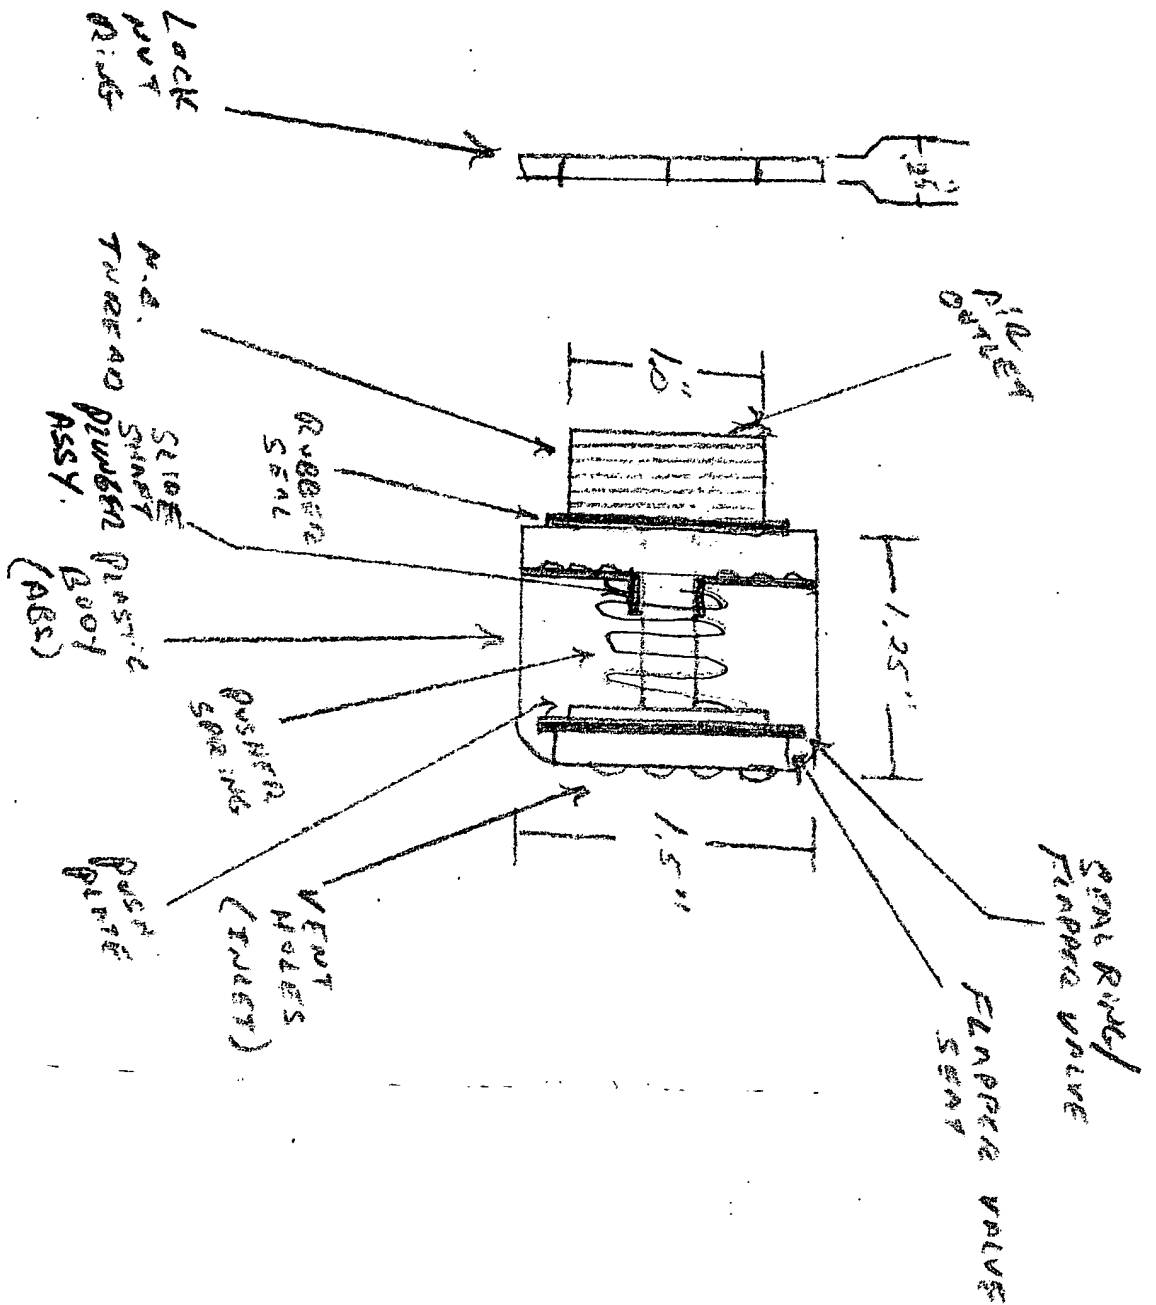 LOCK
NUT
RING
.25"
AIR
OUTLET
THREAD
1.0"
RUBBER
SEAL
SLIDE
SHAFT
PLUNGER
ASSY.
PLASTIC
BODY
(ABS)
1.25"
PUSHER
SPRING
PUSH
PLATE
VENT
HOLES
(INLET)
1.5"
SEAL RING/
FLAPPER VALVE
FLAPPER VALVE
SEAT